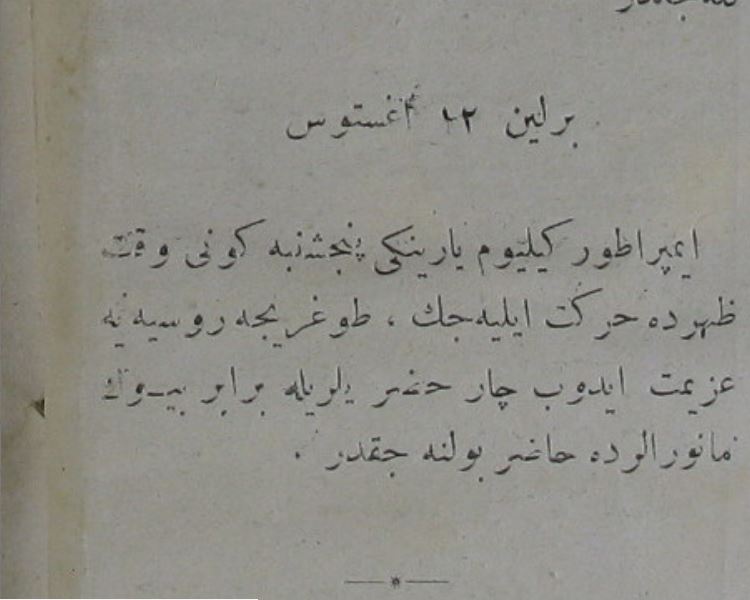 برلین ١٢ اغستوس
ایمپراطور كیلیوم یارینكی پنجشنبه كونی وقت
ظهرده حركت ایلیه‌جك ، طوغریجه روسیه‌یه
عزیمت ایدوب چار حضرتلریله برابر بیوك
مانورالرده حاضر بولنه جقدر .